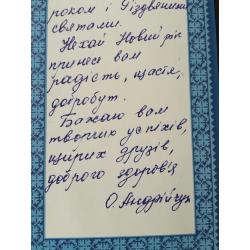 роком і Різдвяними
святами.
Нехай Новий рік
принесе вам
радість, щастя,
добробут.
Бажаю вам
творчих успіхів,
щирих друзів,
доброго здоров'я
О. Андрійчук